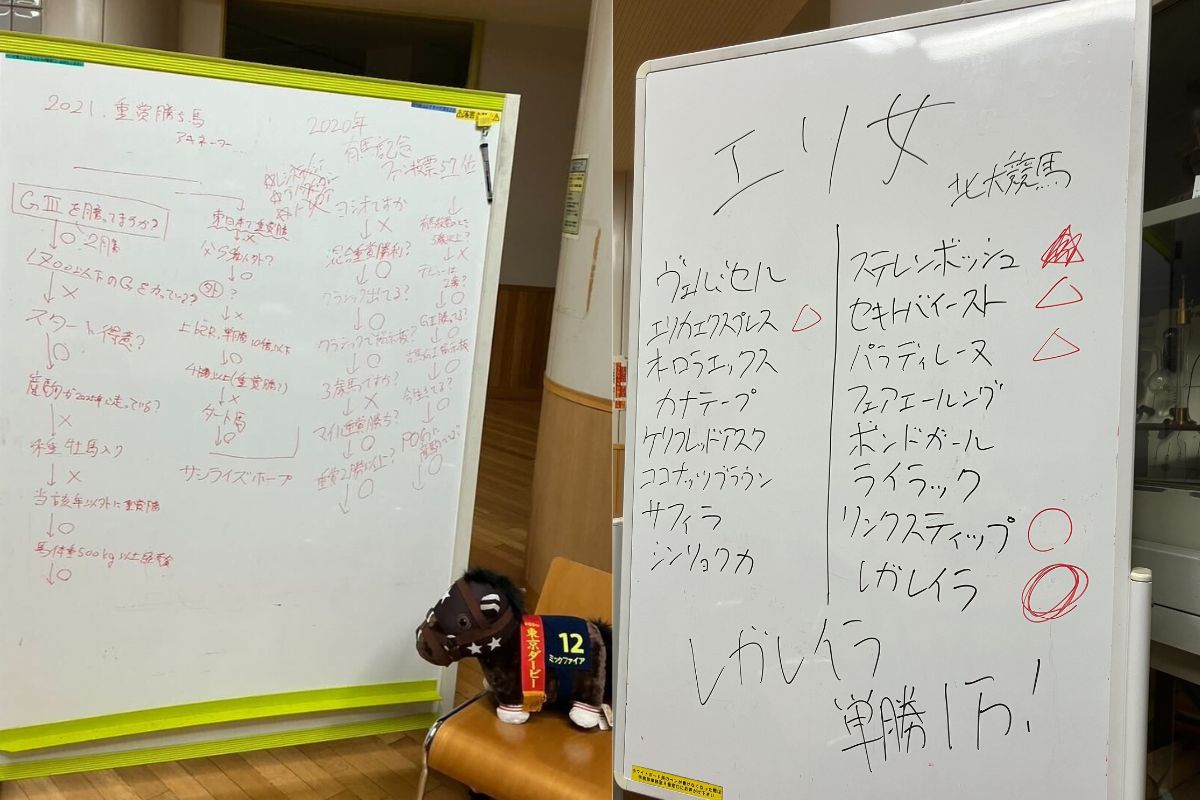 2021. 重賞勝ち馬
アキネーター
GⅢを勝ってますか?
↓○ 2勝
↓×
スタート得意?
↓○
産駒が2025年に走っている?
↓×
種牡馬入り
↓×
当該年以外に重賞勝
↓○
馬体重500kg以上経験
↓○
東日本で重賞勝
↓×
父サ系以外?
↓○
外?
↓×
↓○
4勝以上(重賞勝?)
↓×
ダート馬
↓○
サンライズホープ
2020年
有馬記念
ファン投票57位
ヨシオですか
↓×
混合重賞勝利?
↓○
クラシック出てる?
↓○
クラシックで掲示板?
↓○
3歳馬ですか?
↓×
マイル重賞勝ち?
↓○
重賞2勝以上?
↓○
↓
5歳以上?
↓×
デビューは
2歳?
↓○
GⅡ勝ってる?
↓○
↓○
今生きてる?
↓○
↓○
東京ダービー
12
ミックファイア
エリ女
北大競馬
ヴェルミセル
エリカエクスプレス △
オーロラエックス
カナテープ
ケリフレッドアスク
ココナッツブラウン
サフィラ
シンリョクカ
ステレンボッシュ
セキトバイースト △
パラディレーヌ △
フェアエールング
ボンドガール
ライラック
リンクスティップ ○
レガレイラ ◎
レガレイラ
単勝1万!